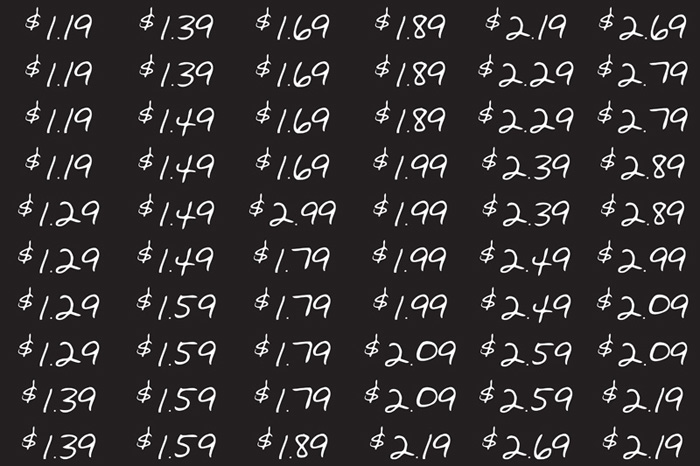 $1.19 $1.39 $1.69 $1.89 $2.19 $2.69
$1.19 $1.39 $1.69 $1.89 $2.29 $2.79
$1.19 $1.49 $1.69 $1.89 $2.29 $2.79
$1.19 $1.49 $1.69 $1.99 $2.39 $2.89
$1.29 $1.49 $2.99 $1.99 $2.39 $2.89
$1.29 $1.49 $1.79 $1.99 $2.49 $2.99
$1.29 $1.59 $1.79 $1.99 $2.49 $2.09
$1.29 $1.59 $1.79 $2.09 $2.59 $2.09
$1.39 $1.59 $1.79 $2.09 $2.59 $2.19
$1.39 $1.59 $1.89 $2.19 $2.69 $2.19